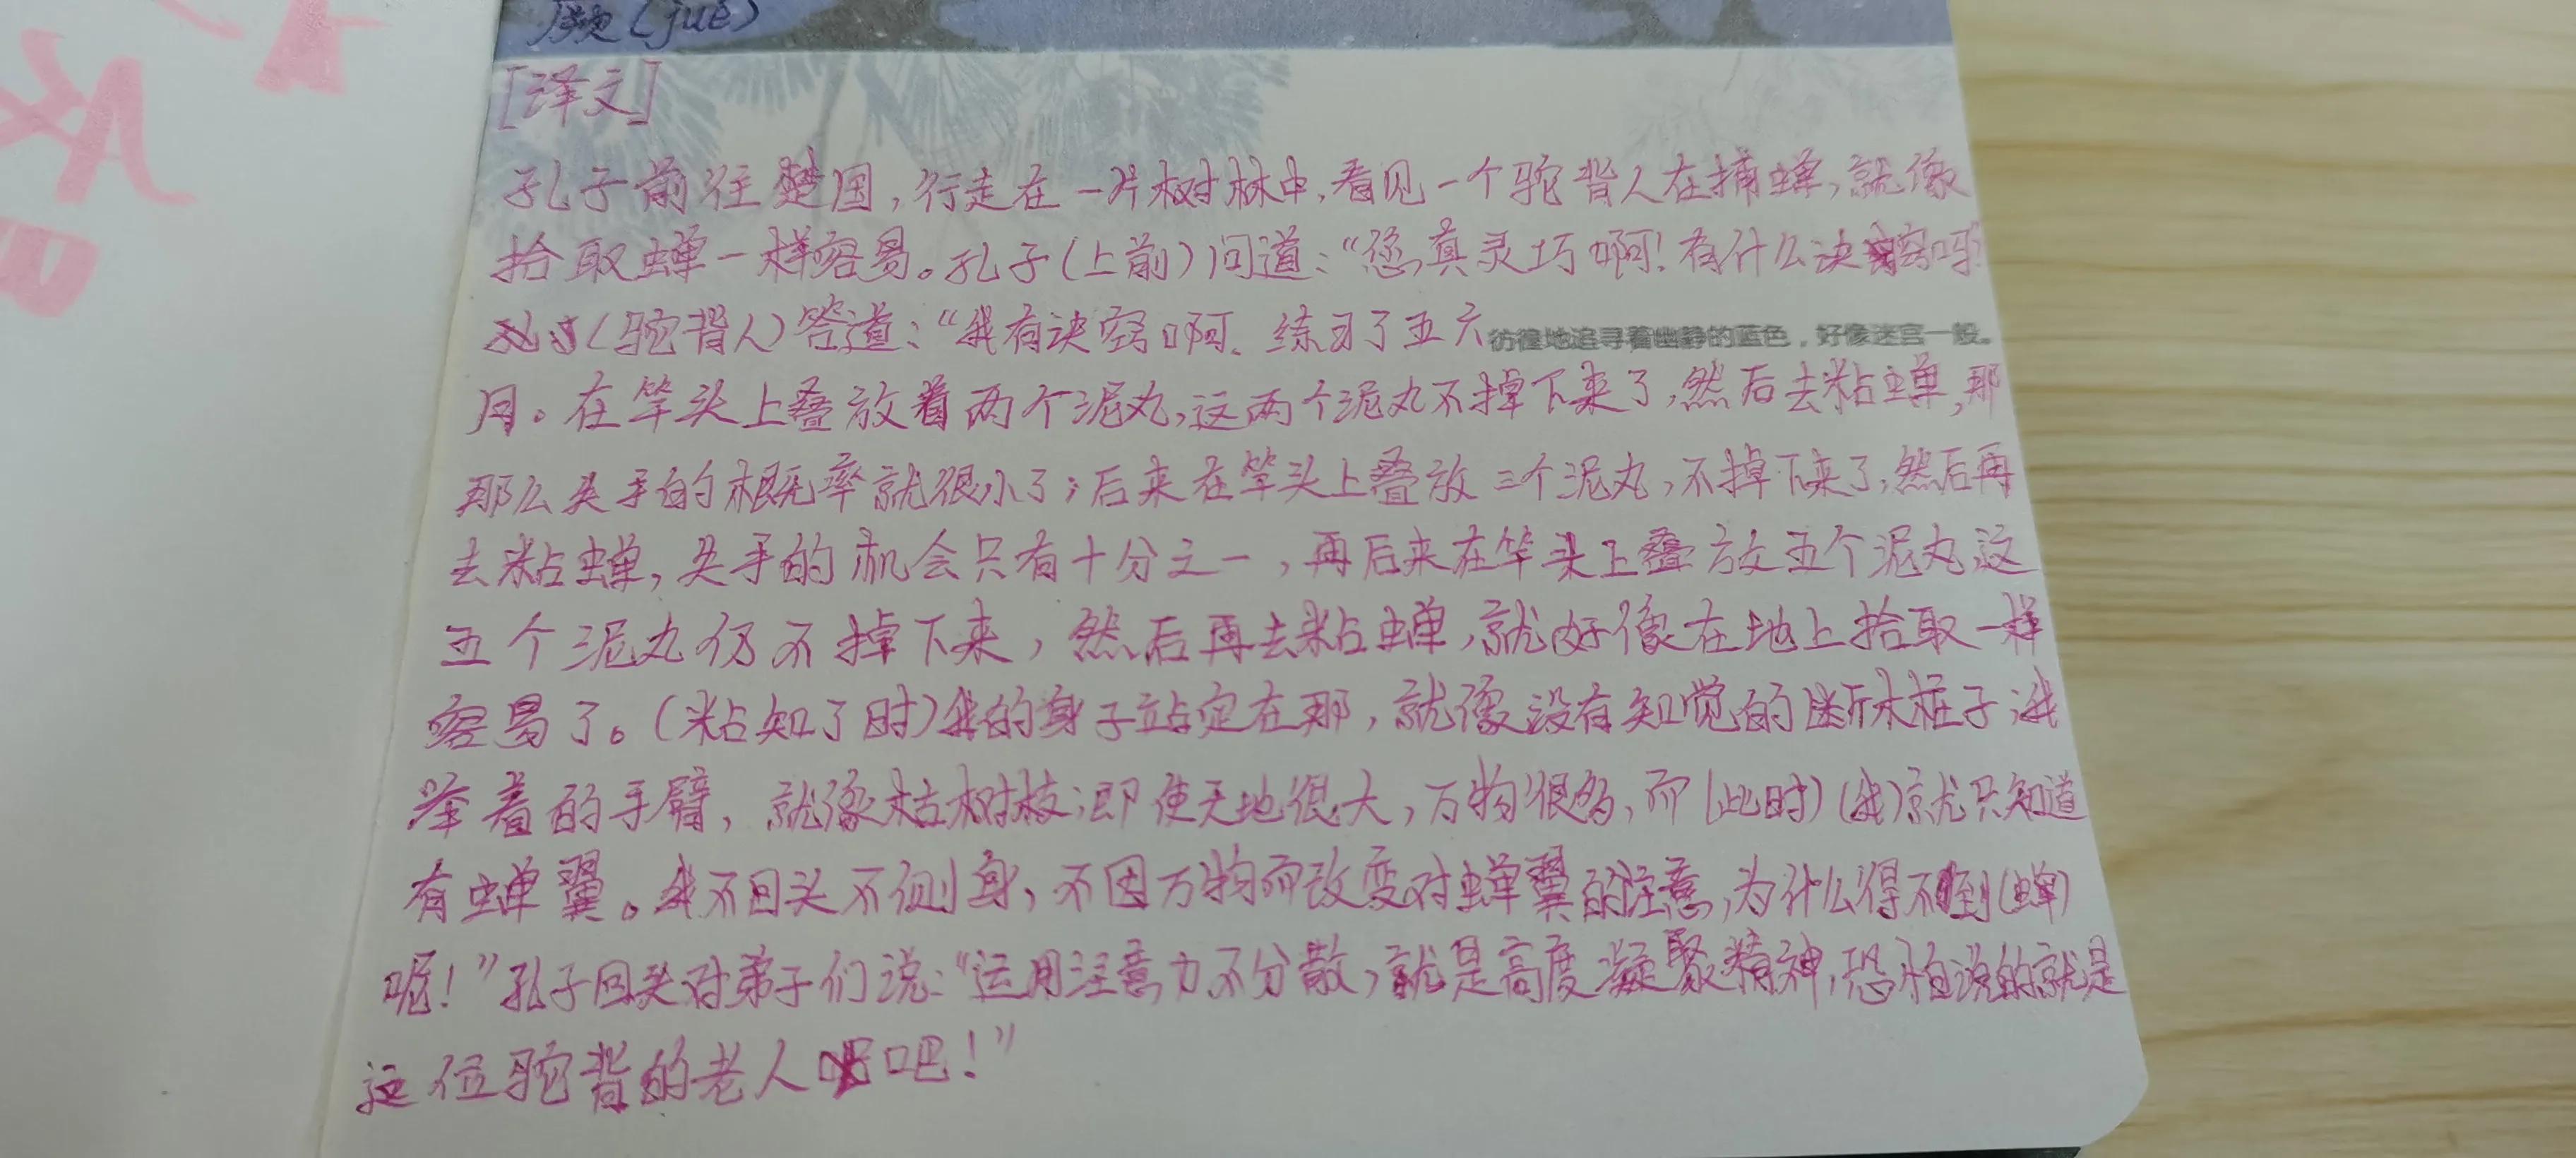 (jué)
[译文]
孔子前往楚国,行走在一片树林中,看见一个驼背人在捕蝉,就像
拾取蝉一样容易。孔子(上前)问道:“您真灵巧啊!有什么决窍吗?
(驼背人)答道:“我有诀窍啊、练习了五六
彷徨地追寻着幽静的蓝色,好像迷宫一般。
月。在竿头上叠放着两个泥丸,这两个泥丸不掉下来了,然后去粘蝉,那
那么失手的概率就很小了;后来在竿头上叠放三个泥丸,不掉下来了,然后再
去粘蝉,失手的机会只有十分之一,再后来在竿头上叠放五个泥丸,这
五个泥丸仍不掉下来,然后再去粘蝉,就好像在地上拾取一样
容易了。(粘知了时)我的身子站定在那,就像没有知觉的断木桩子;我
举着的手臂,就像枯树枝;即使天地很大,万物很多,而(此时)(我)就只知道
有蝉翼。我不回头不侧身,不因万物而改变对蝉翼的注意,为什么得不到(蝉)
呢!”孔子回头对弟子们说:“运用注意力不分散,就是高度凝聚精神,恐怕说的就是
这位驼背的老人吧!”